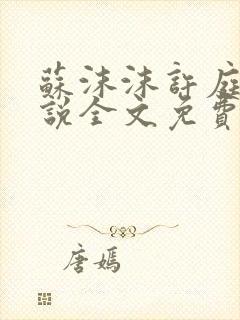 蘇沫沫許庭
說全文免費
唐嫣